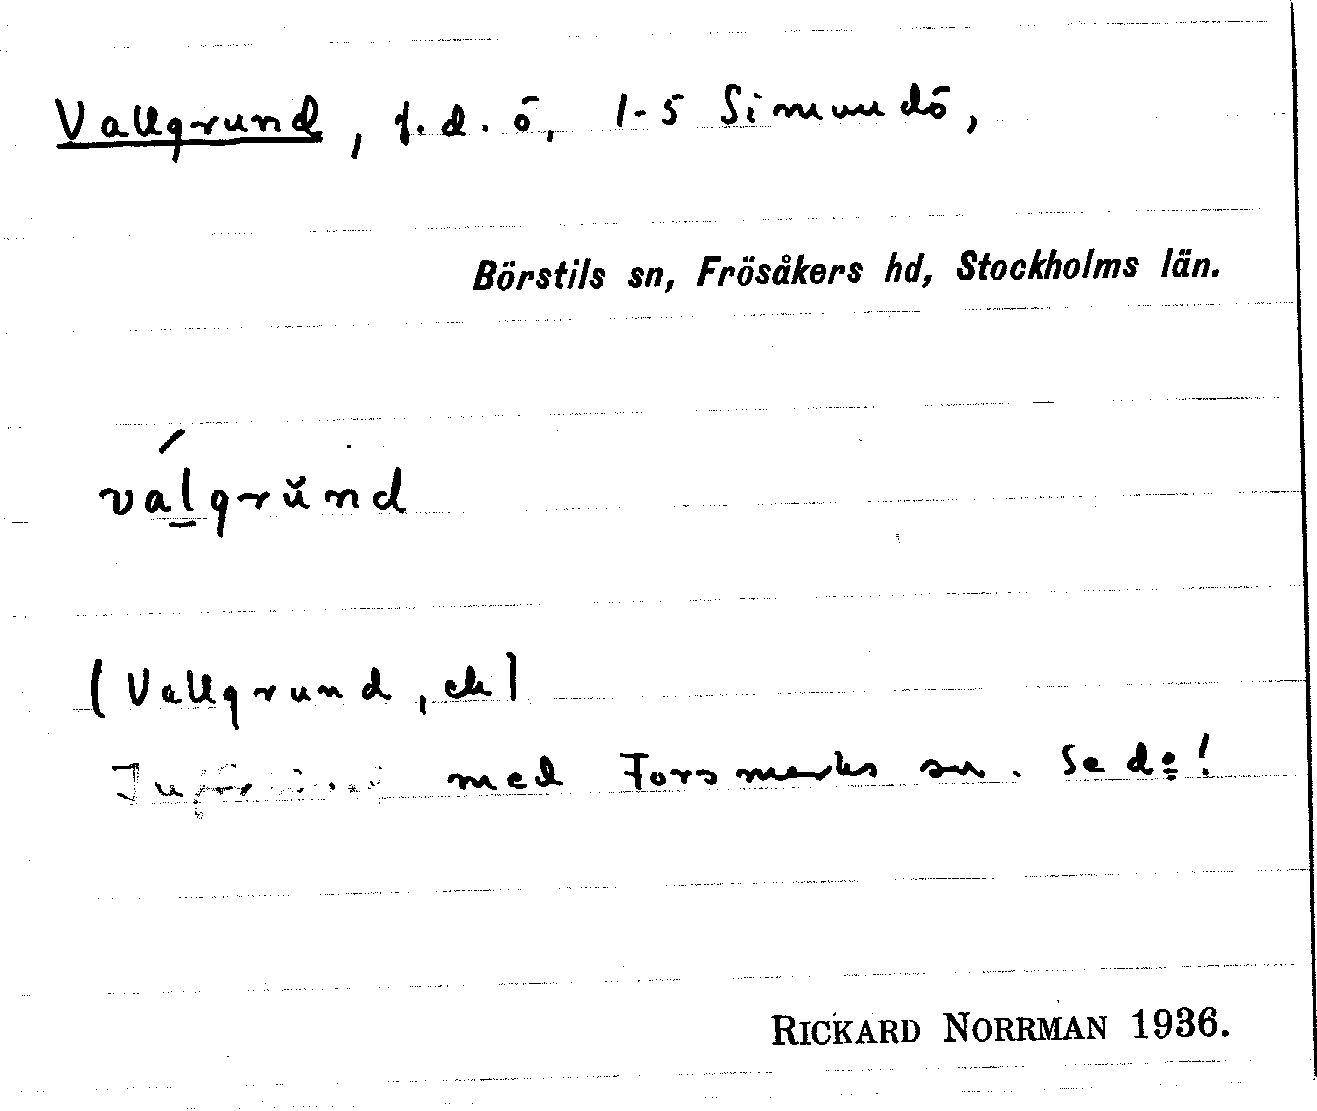 Vallgrund, f.d. ö, 1-5 Simundö,
Börstils sn, Frösåkers hd, Stockholms län.
válgrŭnd
(Vallgrund, ek)
med Forsmarks sn. Se de!
RICKARD NORRMAN 1936.